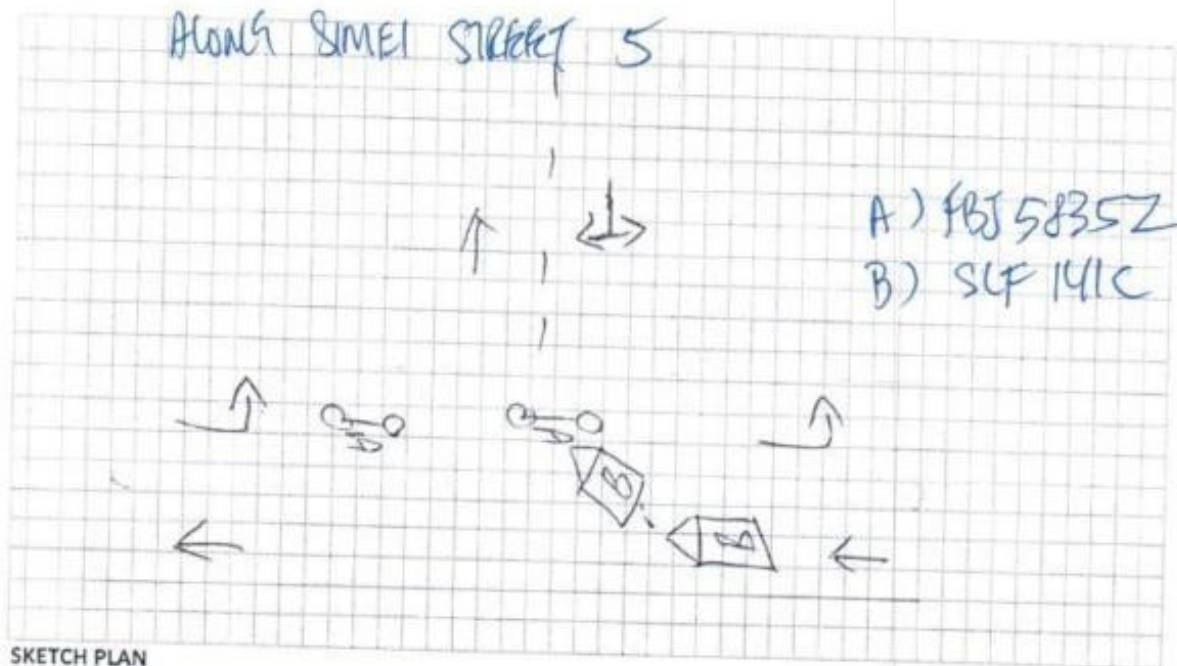 ALONG SIMEI STREET 5
A) FBJ5835Z
B) SLF 141C
B
B
SKETCH PLAN